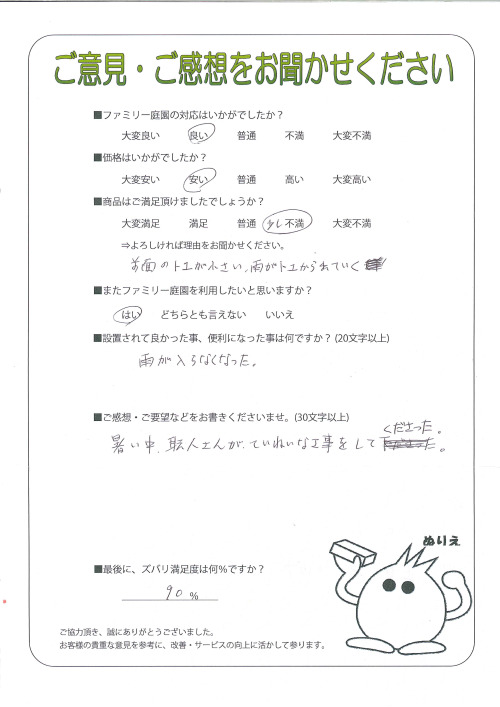 ご意見・ご感想をお聞かせください
■ファミリー庭園の対応はいかがでしたか？
大変良い 良い 普通 不満 大変不満
■価格はいかがでしたか？
大変安い 安い 普通 高い 大変高い
■商品はご満足頂けましたでしょうか？
大変満足 満足 普通 少し不満 大変不満
⇒よろしければ理由をお聞かせください。
前面のトユが小さい、雨がトユからもれていく
■またファミリー庭園を利用したいと思いますか？
はい どちらとも言えない いいえ
■設置されて良かった事、便利になった事は何ですか？(20文字以上)
雨が入らなくなった。
■ご感想・ご要望などをお書きくださいませ。(30文字以上)
暑い中、職人さんが、ていねいな工事をして くださった。
ぬりえ
■最後に、ズバリ満足度は何％ですか？
90 %
ご協力頂き、誠にありがとうございました。
お客様の貴重な意見を参考に、改善・サービスの向上に活かして参ります。